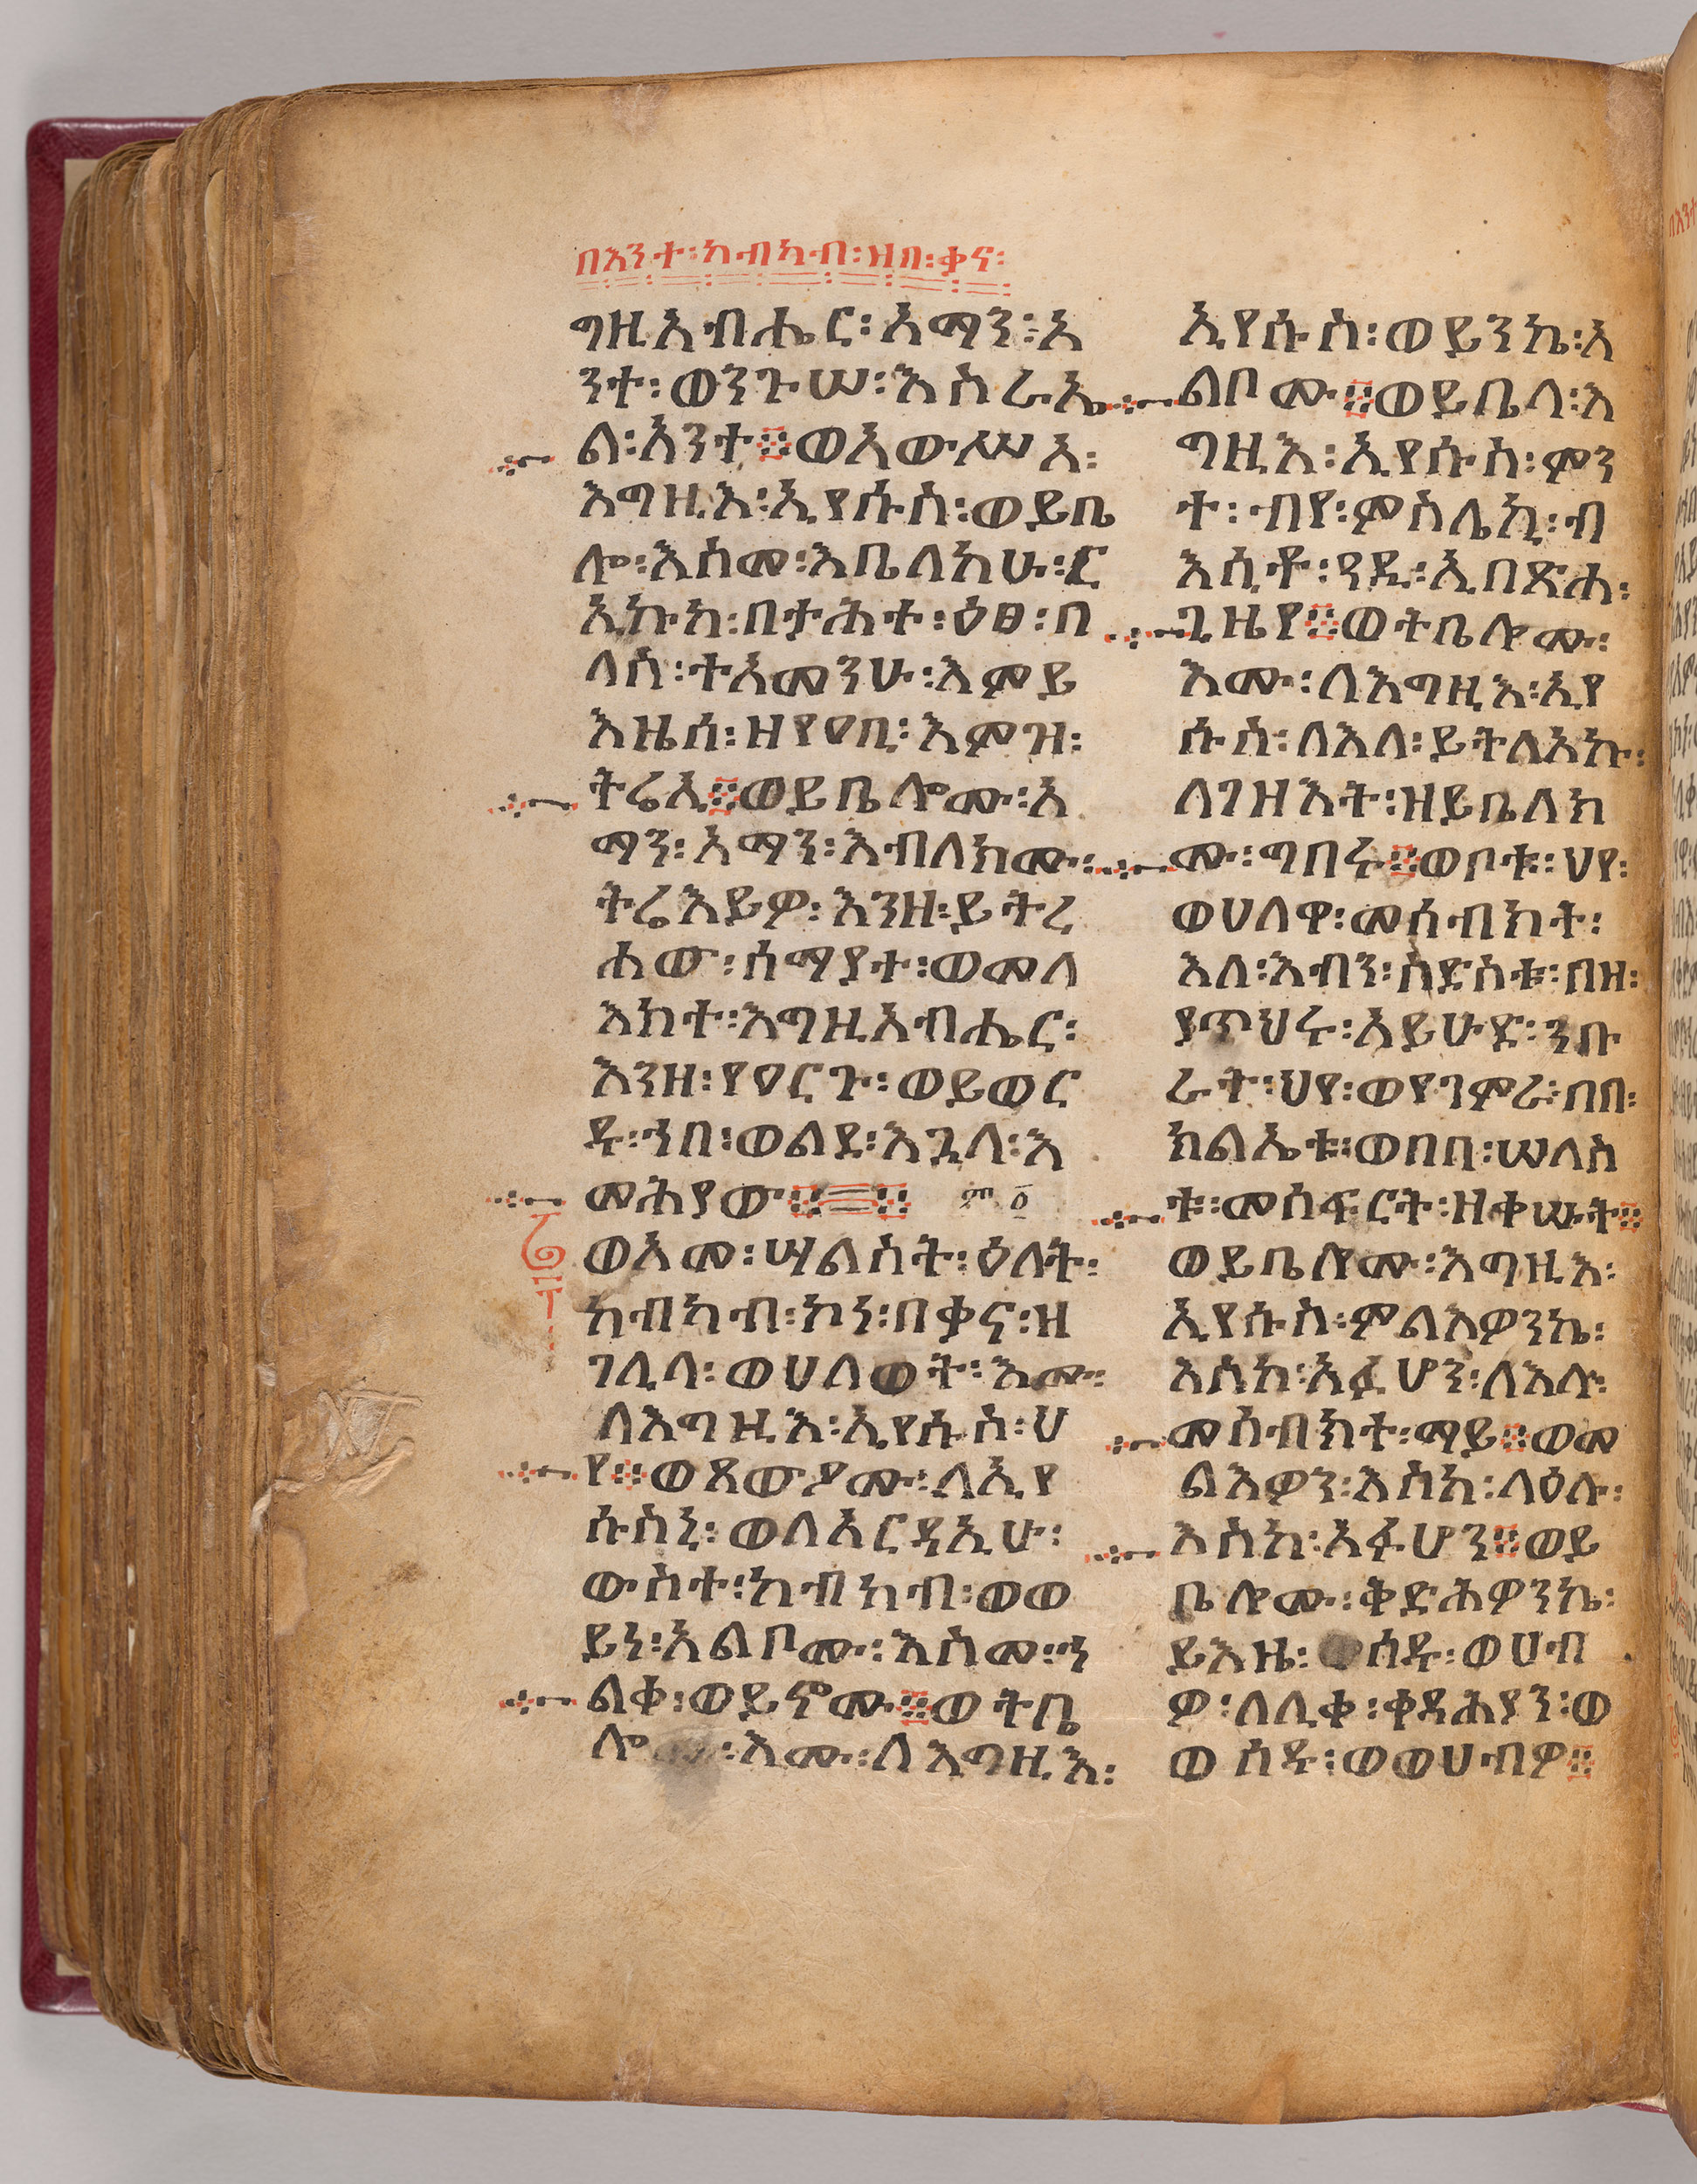 በእንተ፡ከብካብ፡ዝበ፡ቃና፡
ግዚአብሔር፡አማን፡አ
ንተ፡ወንጉሠ፡እስራኤ
ል፡አንተ፨ወአውሥአ፡
እግዚእ፡ኢየሱስ፡ወይቤ
ሎ፡እስመ፡እቤለከሁ፡ር
ኢኩከ፡በታሕተ፡ዕፀ፡በ
ለስ፡ተአመንሁ፡እምይ
እዜሰ፡ዘየዐቢ፡እምዝ፡
ትሬኢ፨ወይቤሎሙ፡አ
ማን፡አማን፡እብለክሙ፡
ትሬእይዎ፡እንዘ፡ይትረ
ሐው፡ሰማያተ፡ወመላ
እክተ፡እግዚአብሔር፡
እንዘ፡የዐርጉ፡ወይወር
ዱ፡ኀበ፡ወልደ፡እጓለ፡እ
መሕያው፨፨ ም፬
ወአመ፡ሣልስት፡ዕለት፡
ከብካብ፡ኮነ፡በቃና፡ዘ
ገሊላ፡ወሀለወት፡እሙ፡
ለእግዚእ፡ኢየሱስ፡ህ
የ፨ወጸውዖሙ፡ለኢየ
ሱስኒ፡ወለአርዳኢሁ፡
ውስተ፡ከብካብ፡ወወ
ይነ፡አልቦሙ፡እስመ፡ኀ
ልቀ፡ወይኖሙ፨ወትቤ
ሎ፡እሙ፡ለእግዚእ፡
ኢየሱስ፡ወይንኬ፡አ
ልቦሙ፨ወይቤላ፡እ
ግዚእ፡ኢየሱስ፡ምን
ተ፡ብየ፡ምስሌኪ፡ብ
እሲቶ፡ዓዲ፡ኢበጽሐ፡
ጊዜየ፨ወትቤሎሙ፡
እሙ፡ለእግዚእ፡ኢየ
ሱስ፡ለእለ፡ይትለአኩ፡
ለገዝእት፡ዘይቤለክ
ሙ፡ግበሩ፨ወቦቱ፡ህየ፡
ወሀለዋ፡መሰብክት፡
እለ፡እብን፡ስድስቱ፡በዘ፡
ያጥህሩ፡አይሁድ፡ንቡ
ራት፡ህየ፡ወየገምራ፡በበ፡
ክልኤቱ፡ወበበ፡ሠለስ
ቱ፡መስፍርት፡ዘቀሡት፨
ወይቤሎሙ፡እግዚእ፡
ኢየሱስ፡ምልእዎንኬ፡
እስከ፡አፈሆን፡ለእሉ፡
መስብክተ፡ማይ፨ወመ
ልእዎን፡እስከ፡ላዕሉ፡
እስከ፡አፉሆን፨ወይ
ቤሎሙ፡ቅድሕዎንኬ፡
ይእዜ፡ሰዱ፡ወሀብ
ዎ፡ለሊቀ፡ቀዳሕያን፡ወ
ወሰዱ፡ወወሀብዎ፨